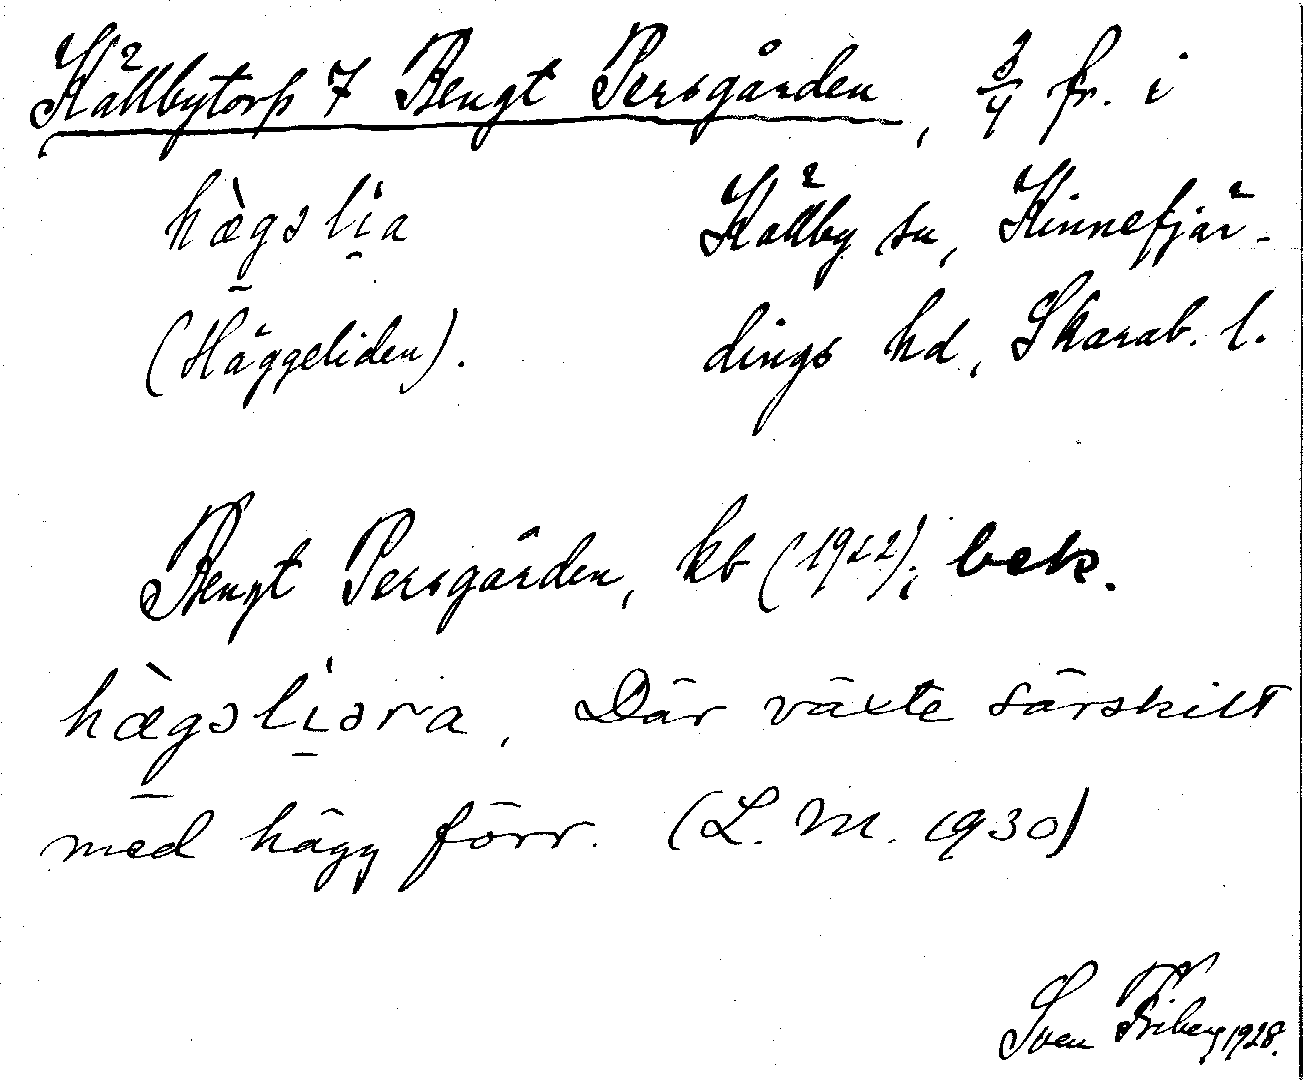 Källbytorp 7 Bengt Persgården, 3/4 fr. i
hægslia Källby sn, Kinnefjär-
(Häggeliden). dings hd, Skarab. l.
Bengt Persgården, kb (1922); bek.
hægəliəra. Där växte särskilt
med hägg förr. (L. M. 1930)
Sven Friberg 1928.